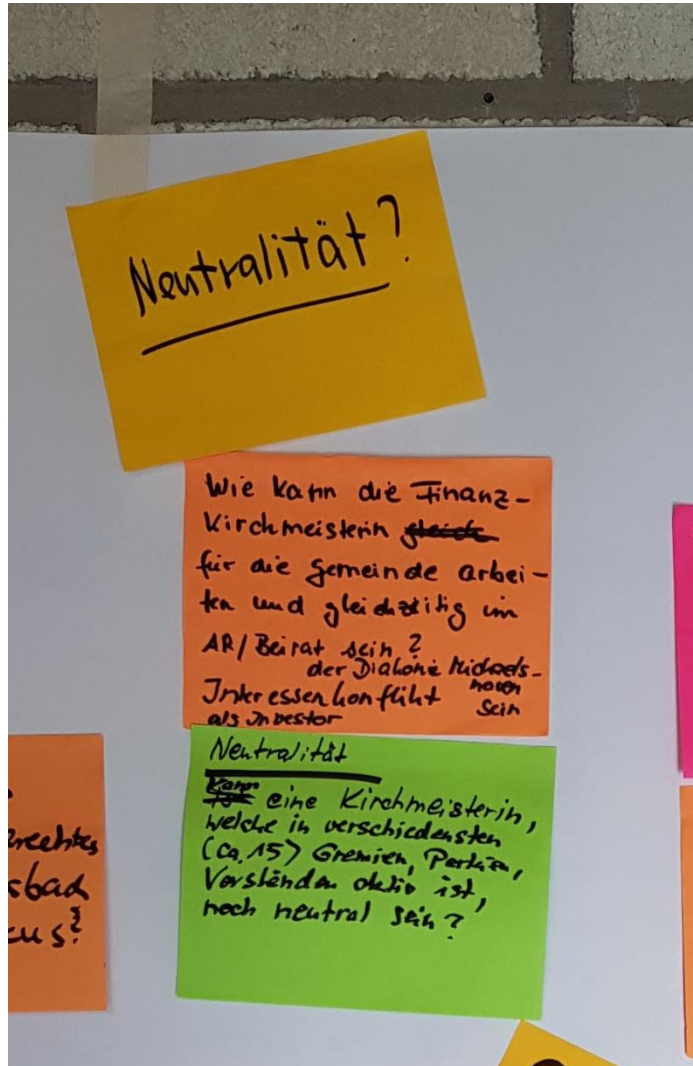 Neutralität?
Wie kann die Finanz-
Kirchmeisterin gleich
für die Gemeinde arbei-
ten und gleichzeitig im
AR/Beirat sein?
der Diakonie Michaels-
hoven
Interessenkonflikt sein
als Investor
Neutralität
Kann eine Kirchmeisterin,
welche in verschiedensten
(ca. 15) Gremien, Parteien,
Vorständen aktiv ist,
noch neutral sein?
rechtes
sbad
us?